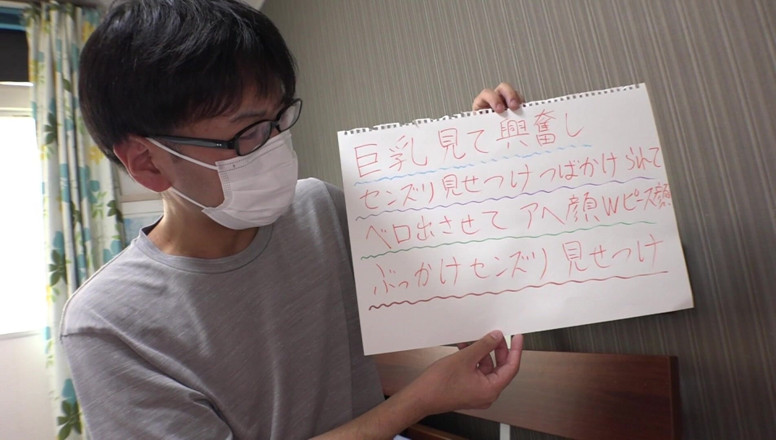 巨乳見て興奮し
センズリ見せつけつばかけられて
ベロ出させてアヘ顔Wピース顔
ぶっかけセンズリ見せつけ